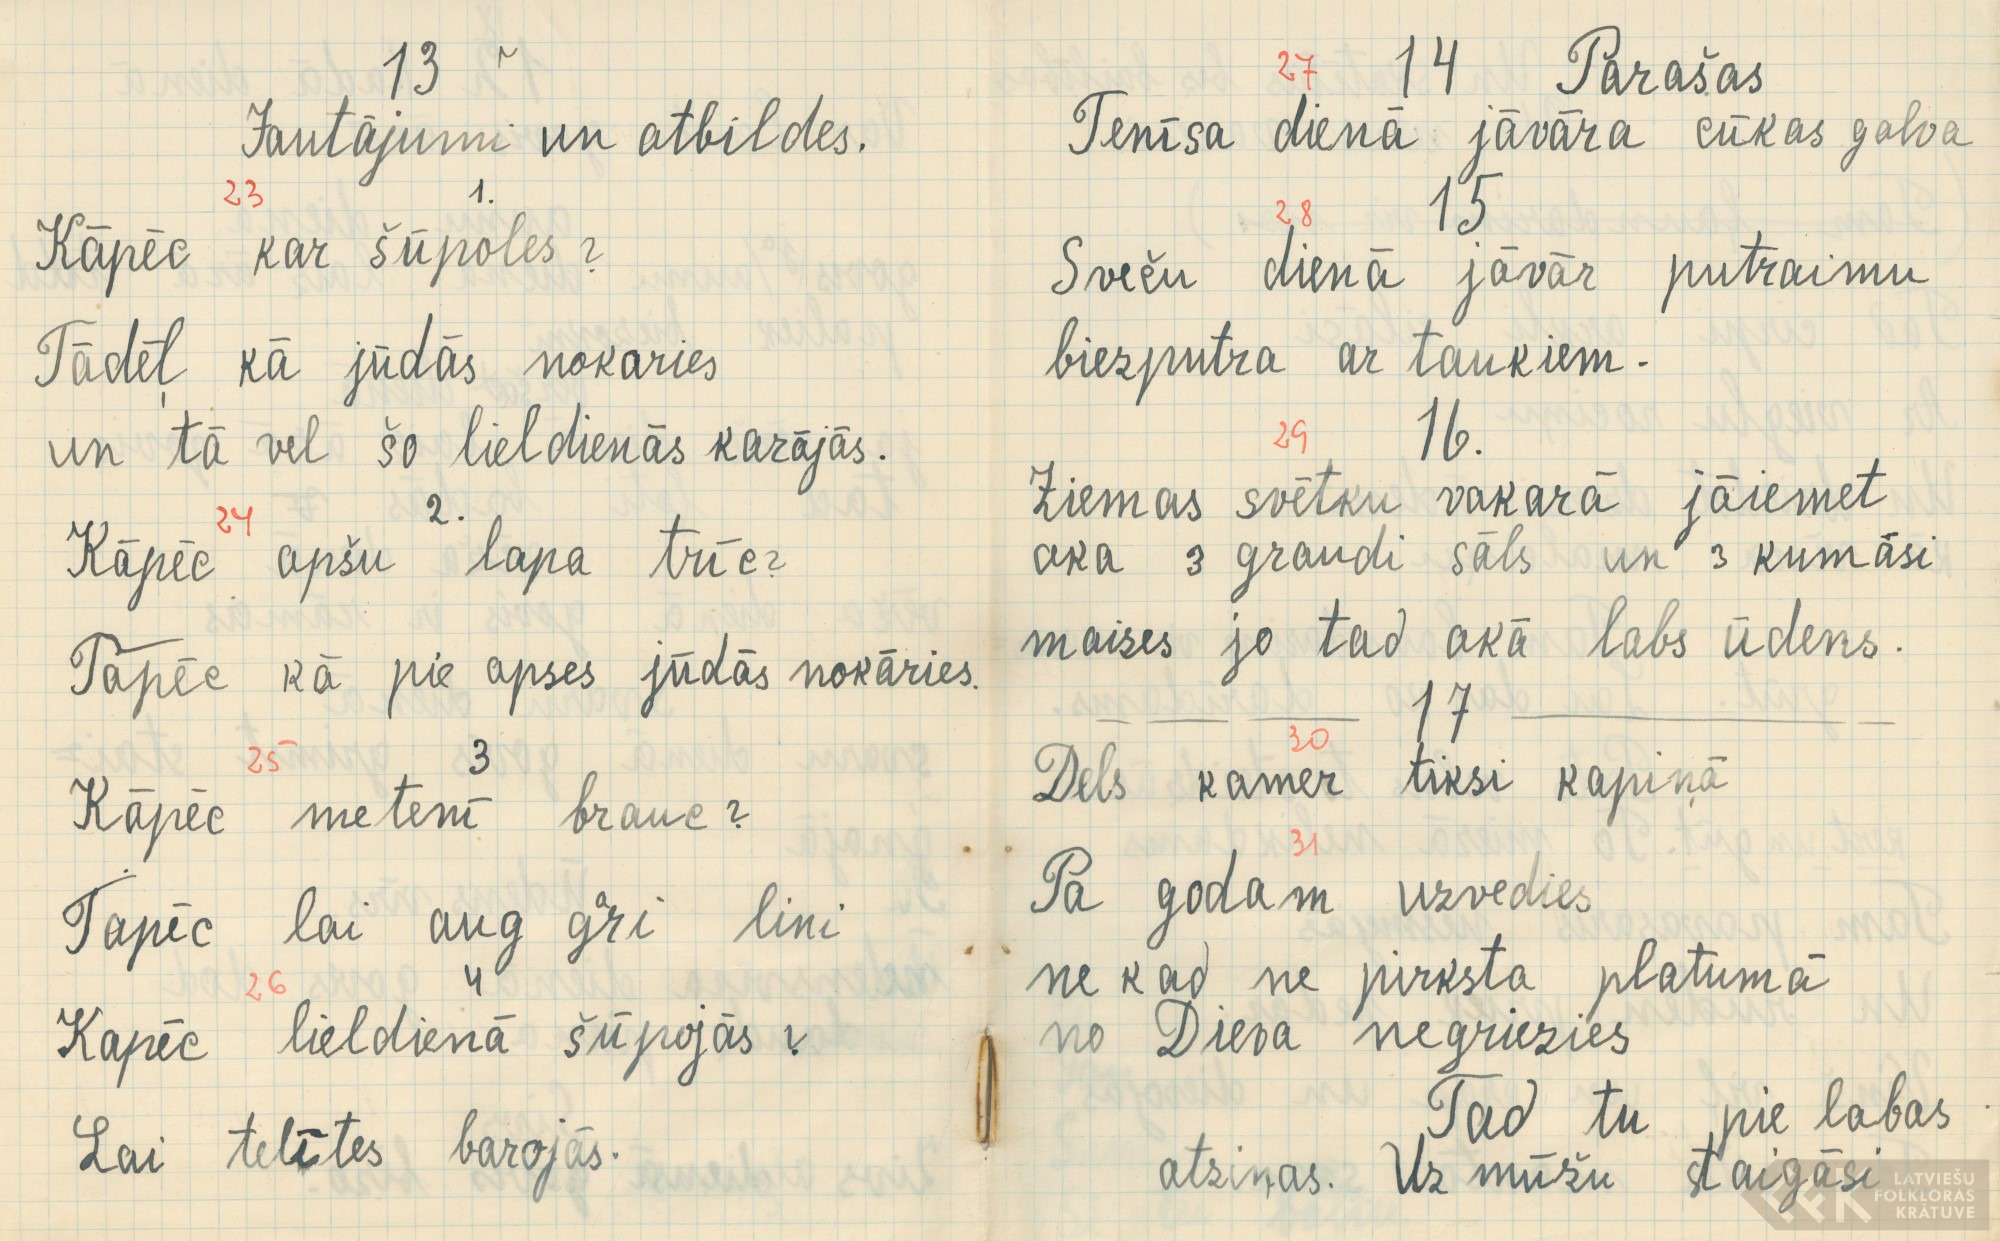 13
Jautājumi un atbildes.
23 1.
Kāpēc kar šūpoles?
Tādēļ kā jūdās nokaries
un tā vel šo lieldienās karājās.
24 2.
Kāpēc apšu lapa trīc?
Tāpēc kā pie apses jūdās nokāries.
25 3
Kāpēc metenī brauc?
Tapēc lai aug gari lini
26 4
Kapēc lieldienā šūpojās?
Lai telītes barojās.
27 14 Parašas
Tenīsa dienā jāvāra cūkas galva
28 15
Sveču dienā jāvār putraimu
biezputra ar taukiem.
29 16.
Ziemas svētku vakarā jāiemet
aka 3 graudi sāls un 3 kumāsi
maises jo tad akā labs ūdens.
17
30
Dels kamer tiksi kapiņā
31
Pa godam uzvedies
ne kad ne pirksta platumā
no Dieva negriezies
Tad tu pie labas
atziņas. Uz mūžu staigāsi
LATVIEŠU
FOLKLORAS
KRĀTUVE